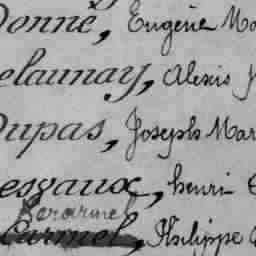 Donné, Eugène Ma
elaunay, Alexis J
Dupas, Joseph Mar
esgaux, henri
Carmel, Philippe